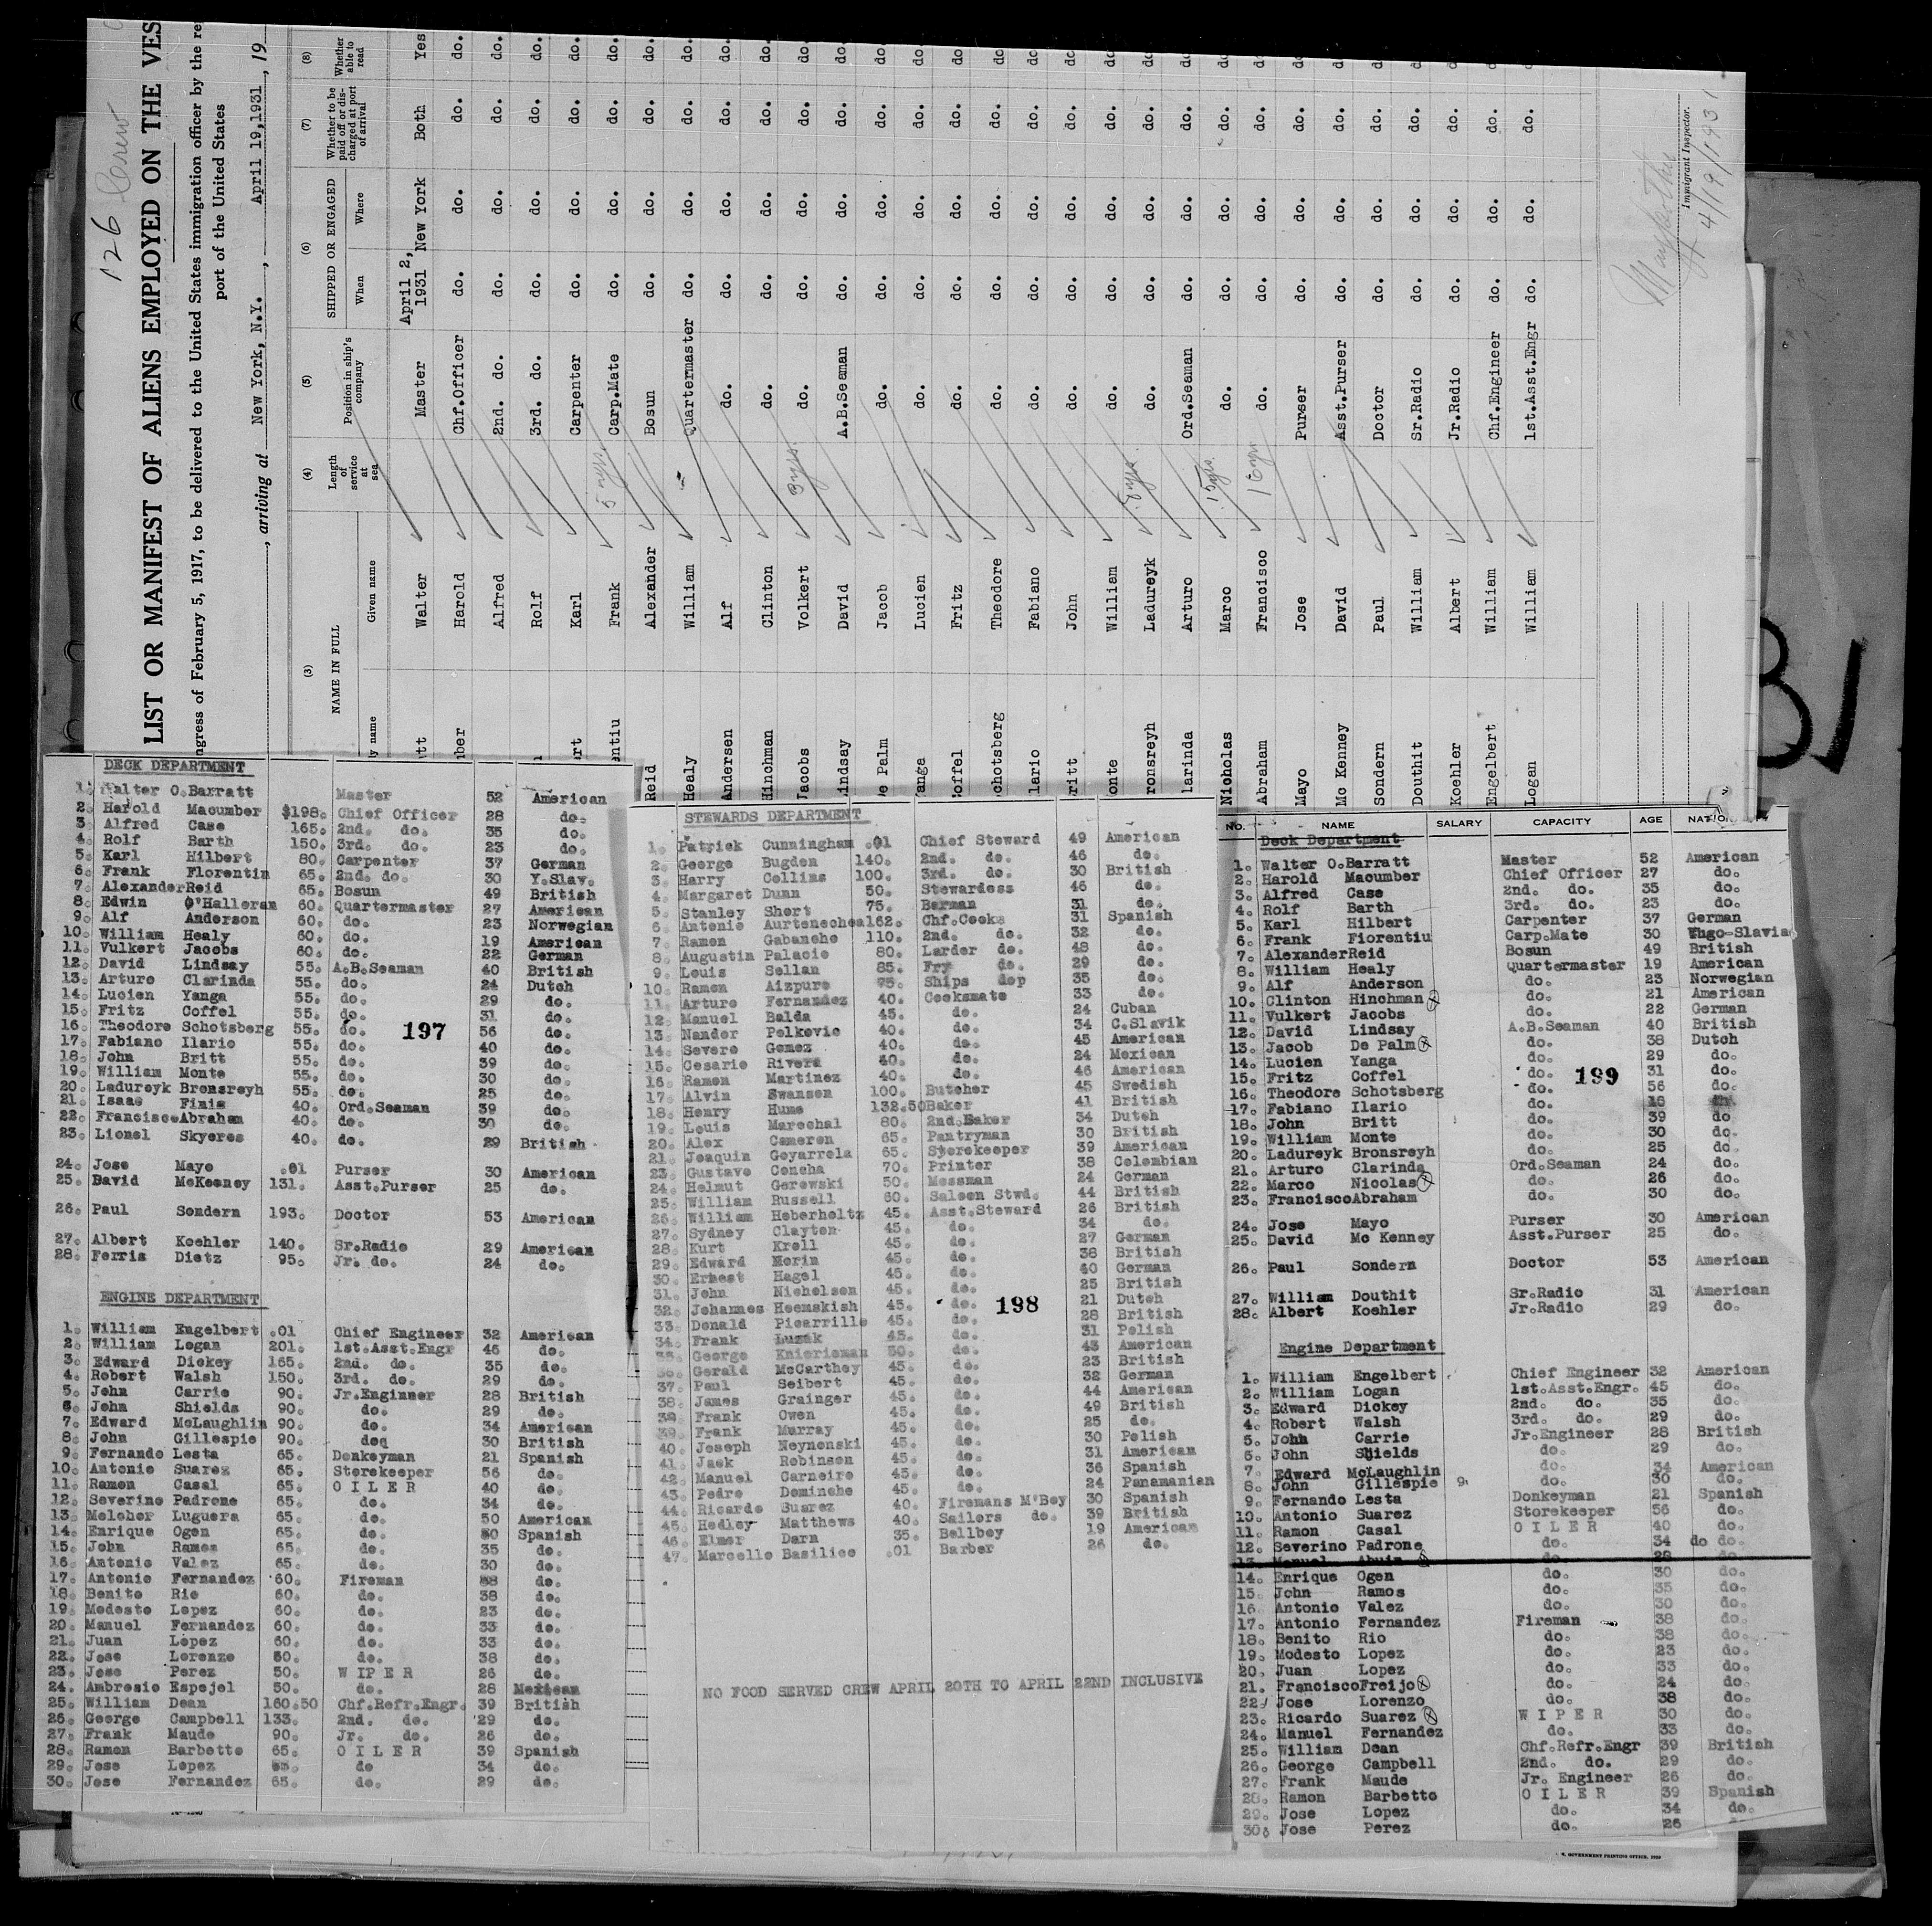 126 Crew
LIST OR MANIFEST OF ALIENS EMPLOYED ON THE VES
ngress of February 5, 1917, to be delivered to the United States immigration officer by the re
port of the United States
, arriving at New York, N.Y. , April 19,1931 , 19
(3) (4) (5) (6) (7) (8)
NAME IN FULL Length of service at sea Position in ship's company SHIPPED OR ENGAGED Whether to be paid off or discharged at port of arrival Whether able to read
y name Given name When Where
tt Walter Master April 2, 1931 New York Both Yes
mber Harold Chf.Officer do. do. do. do.
Alfred 2nd. do. do. do. do. do.
Rolf 3rd. do. do. do. do. do.
ert Karl Carpenter do. do. do. do.
entiu Frank 5 yrs. Carp.Mate do. do. do. do.
Reid Alexander Bosun do. do. do. do.
Healy William Quartermaster do. do. do. do.
Andersen Alf do. do. do. do. do.
Hinchman Clinton do. do. do. do. do.
Jacobs Volkert 3 yrs. do. do. do. do. do.
indsay David A.B.Seaman do. do. do. do.
e Palm Jacob do. do. do. do. do.
anga Lucien do. do. do. do. do.
offel Fritz do. do. do. do. do.
chotsberg Theodore do. do. do. do. do.
lario Fabiano do. do. do. do. do.
ritt John do. do. do. do. do.
onte William do. do. do. do. do.
ronsreyh Ladureyk do. do. do. do. do.
larinda Arturo Ord.Seaman do. do. do. do.
Nicholas Marco do. do. do. do. do.
Abraham Francisco do. do. do. do. do.
Mayo Jose Purser do. do. do. do.
Mc Kenney David Asst.Purser do. do. do. do.
Sondern Paul Doctor do. do. do. do.
Douthit William Sr.Radio do. do. do. do.
Koehler Albert Jr.Radio do. do. do. do.
Engelbert William Chf.Engineer do. do. do. do.
Logan William 1st.Asst.Engr do. do. do. do.
Immigrant Inspector.
4/19/1931
DECK DEPARTMENT
1. Walter O.Barratt Master 52 American
2. Harold Macumber $198. Chief Officer 28 do.
3. Alfred Case 165. 2nd. do. 35 do.
4. Rolf Barth 150. 3rd. do. 23 do.
5. Karl Hilbert 80. Carpenter 37 German
6. Frank Florentin 65. 2nd. do. 30 Y.Slav.
7. AlexanderReid 65. Bosun 49 British
8. Edwin O'Halleran 60. Quartermaster 27 American
9. Alf Anderson 60. do. 23 Norwegian
10. William Healy 60. do. 19 American
11. Vulkert Jacobs 60. do. 22 German
12. David Lindsay 55. A.B.Seaman 40 British
13. Arturo Clarinda 55. do. 24 Dutch
14. Lucien Yanga 55. do. 29 do.
15. Fritz Coffel 55. do. 31 do.
16. Theodore Schotsberg 55. do. 56 do.
197
17. Fabiano Ilario 55. do. 40 do.
18. John Britt 55. do. 39 do.
19. William Monte 55. do. 30 do.
20. Ladureyk Bronsreyh 55. do. 25 do.
21. Isaac Finis 40. Ord.Seaman 39 do.
22. FranciscoAbraham 40. do. 30 do.
23. Lionel Skyeres 40. do. 29 British
24. Jose Mayo .01 Purser 30 American
25. David McKenney 131. Asst.Purser 25 do.
26. Paul Sondern 193. Doctor 53 American
27. Albert Koehler 140. Sr.Radio 29 American
28. Ferris Dietz 95. Jr. do. 24 do.
ENGINE DEPARTMENT
1. William Engelbert .01 Chief Engineer 32 American
2. William Logan 201. 1st.Asst.Engr 46 do.
3. Edward Dickey 165. 2nd. do. 35 do.
4. Robert Walsh 150. 3rd. do. 29 do.
5. John Carrie 90. Jr.Enginner 28 British
6. John Shields 90. do. 29 do.
7. Edward McLaughlin 90. do. 34 American
8. John Gillespie 90. doq 30 British
9. Fernando Lesta 65. Donkeyman 21 Spanish
10. Antonio Suarez 65. Storekeeper 56 do.
11. Ramon Casal 65. O I L E R 40 do.
12. Severino Padrone 65. do. 34 do.
13. Melcher Luguera 65. do. 50 American
14. Enrique Ogen 65. do. 30 Spanish
15. John Ramos 65. do. 35 do.
16. Antonio Valez 65. do. 30 do.
17. Antonio Fernandez 60. Fireman 38 do.
18. Benito Rio 60. do. 38 do.
19. Modesto Lopez 60. do. 23 do.
20. Manuel Fernandez 60. do. 33 do.
21. Juan Lopez 60. do. 33 do.
22. Jose Lorenzo 60. do. 38 do.
23. Jose Perez 50. W I P E R 26 do.
24. Ambrosio Espejel 50. do. 28 Mexican
25. William Dean 160.50 Chf.Refr.Engr. 39 British
26. George Campbell 133. 2nd. do. 29 do.
27. Frank Maude 90. Jr. do. 26 do.
28. Ramon Barbetto 65. O I L E R 39 Spanish
29. Jose Lopez 65. do 34 do.
30. Jose Fernandez 65. do. 29 do.
STEWARDS DEPARTMENT
1. Patrick Cunningham .01 Chief Steward 49 American
2. George Bugden 140. 2nd. do. 46 do.
3. Harry Collins 100. 3rd. do. 30 British
4. Margaret Dunn 50. Stewardess 46 do.
5. Stanley Short 75. Barman 31 do.
6. Antonio Aurtenechea162. Chf.Cooks 31 Spanish
7. Ramon Gabanche 110. 2nd. do. 32 do.
8. Augustin Palacio 80. Larder do. 48 do.
9. Louis Sellan 85. Fry do. 29 do.
10. Ramon Aizpuro 75. Ships dop 35 do.
11. Arturo Fernandez 40. Cooksmate 33 do.
12. Manuel Balda 45. do. 24 Cuban
13. Nander Polkovic 40. do. 34 C.Slavik
14. Severo Gomez 40. do. 45 American
15. Cesario Rivera 40. do. 24 Mexican
16. Ramon Martinez 40. do. 46 American
17. Alvin Swanson 100. Butcher 45 Swedish
18. Henry Hume 132.50Baker 41 British
19. Louis Marechal 80. 2nd.Baker 34 Dutch
20. Alex Cameron 65. Pantryman 30 British
21. Joaquin Goyarrola 65. Storekeeper 39 American
23. Gustavo Concha 70. Printer 38 Colombian
24. Helmut Gerowski 50. Messman 24 German
25. William Russell 60. Saloon Stwd. 44 British
26. William Heberholtz 45. Asst.Steward 26 British
27. Sydney Clayton 45. do. 34 do.
28. Kurt Kroll 45. do. 27 German
29. Edward Morin 45. do. 38 British
30. Ernest Hagel 45. do. 40 German
31. John Nicholson 45. do. 25 British
32. Johannes Heemskish 45. do. 21 Dutch
198
33. Donald Picarrillo 45. do. 28 British
34. Frank Luzak 45. do. 31 Polish
35. George Knierieman 50. do. 43 American
36. Gerald McCarthey 45. do. 23 British
37. Paul Seibert 45. do. 32 German
38. James Grainger 45. do. 44 American
39. Frank Owen 45. do. 49 British
39. Frank Murray 45. do. 25 do.
40. Joseph Neynenski 45. do. 30 Polish
41. Jack Robinson 45. do. 31 American
42. Manuel Carneiro 45. do. 36 Spanish
43. Pedro Dominche 45. do. 24 Panamanian
44. Ricardo Suarez 40. Firemans M'Boy 30 Spanish
45. Hedley Matthews 40. Sailors do. 39 British
46. Elmer Darn 35. Bellboy 19 American
47. Marcello Basilice .01 Barber 26 do.
NO FOOD SERVED CREW APRIL 20TH TO APRIL 22ND INCLUSIVE
NO. NAME SALARY CAPACITY AGE
Deck Department
1. Walter O.Barratt Master 52 American
2. Harold Macumber Chief Officer 27 do.
3. Alfred Case 2nd. do. 35 do.
4. Rolf Barth 3rd. do. 23 do.
5. Karl Hilbert Carpenter 37 German
6. Frank Fiorentiu Carp.Mate 30 Yugo-Slavia
7. AlexanderReid Bosun 49 British
8. William Healy Quartermaster 19 American
9. Alf Anderson do. 23 Norwegian
10. Clinton Hinchman do. 21 American
11. Vulkert Jacobs do. 22 German
12. David Lindsay A.B.Seaman 40 British
13. Jacob De Palm do. 38 Dutch
14. Lucien Yanga do. 29 do.
15. Fritz Coffel do. 31 do.
199
16. Theodore Schotsberg do. 56 do.
17. Fabiano Ilario do.
18. John Britt do. 39 do
19. William Monte do. 30 do.
20. Ladureyk Bronsreyh do. 25 do.
21. Arturo Clarinda Ord.Seaman 24 do.
22. Marco Nicolas do. 26 do.
23. FranciscoAbraham do. 30 do.
24. Jose Mayo Purser 30 American
25. David Mc Kenney Asst.Purser 25 do.
26. Paul Sondern Doctor 53 American
27. William Douthit Sr.Radio 31 American
28. Albert Koehler Jr.Radio 29 do.
Engine Department
1. William Engelbert Chief Engineer 32 American
2. William Logan 1st.Asst.Engr. 45 do.
3. Edward Dickey 2nd. do. 35 do.
4. Robert Walsh 3rd. do. 29 do.
5. John Carrie Jr.Engineer 28 British
6. John Shields do. 29 do.
7. Edward McLaughlin do. 34 American
8. John Gillespie do. 30 do.
9. Fernando Lesta Donkeyman 21 Spanish
10. Antonio Suarez Storekeeper 56 do.
11. Ramon Casal O I L E R 40 do.
12. Severino Padrone do. 34 do do.
13. Manuel Abuin do. 28 do.
14. Enrique Ogen do. 30 do.
15. John Ramos do. 35 do.
16 Antonio Valez do. 30 do.
17. Antonio Fernandez Fireman 38 do.
18. Benito Rio do. 38 do.
19. Modesto Lopez do. 23 do.
20. Juan Lopez do. 33 do.
21. FranciscoFreijo do. 24 do.
22. Jose Lorenzo do. 38 do.
23. Ricardo Suarez W I P E R 30 do.
24. Manuel Fernandez do. 33 do.
25. William Dean Chf.Refr.Engr 39 British
26. George Campbell 2nd. do. 29 do.
27. Frank Maude Jr. Engineer 26 do.
28. Ramon Barbetto O I L E R 39 Spanish
29. Jose Lopez do. 34 do.
30. Jose Perez do. 26
GOVERNMENT PRINTING OFFICE, 1929